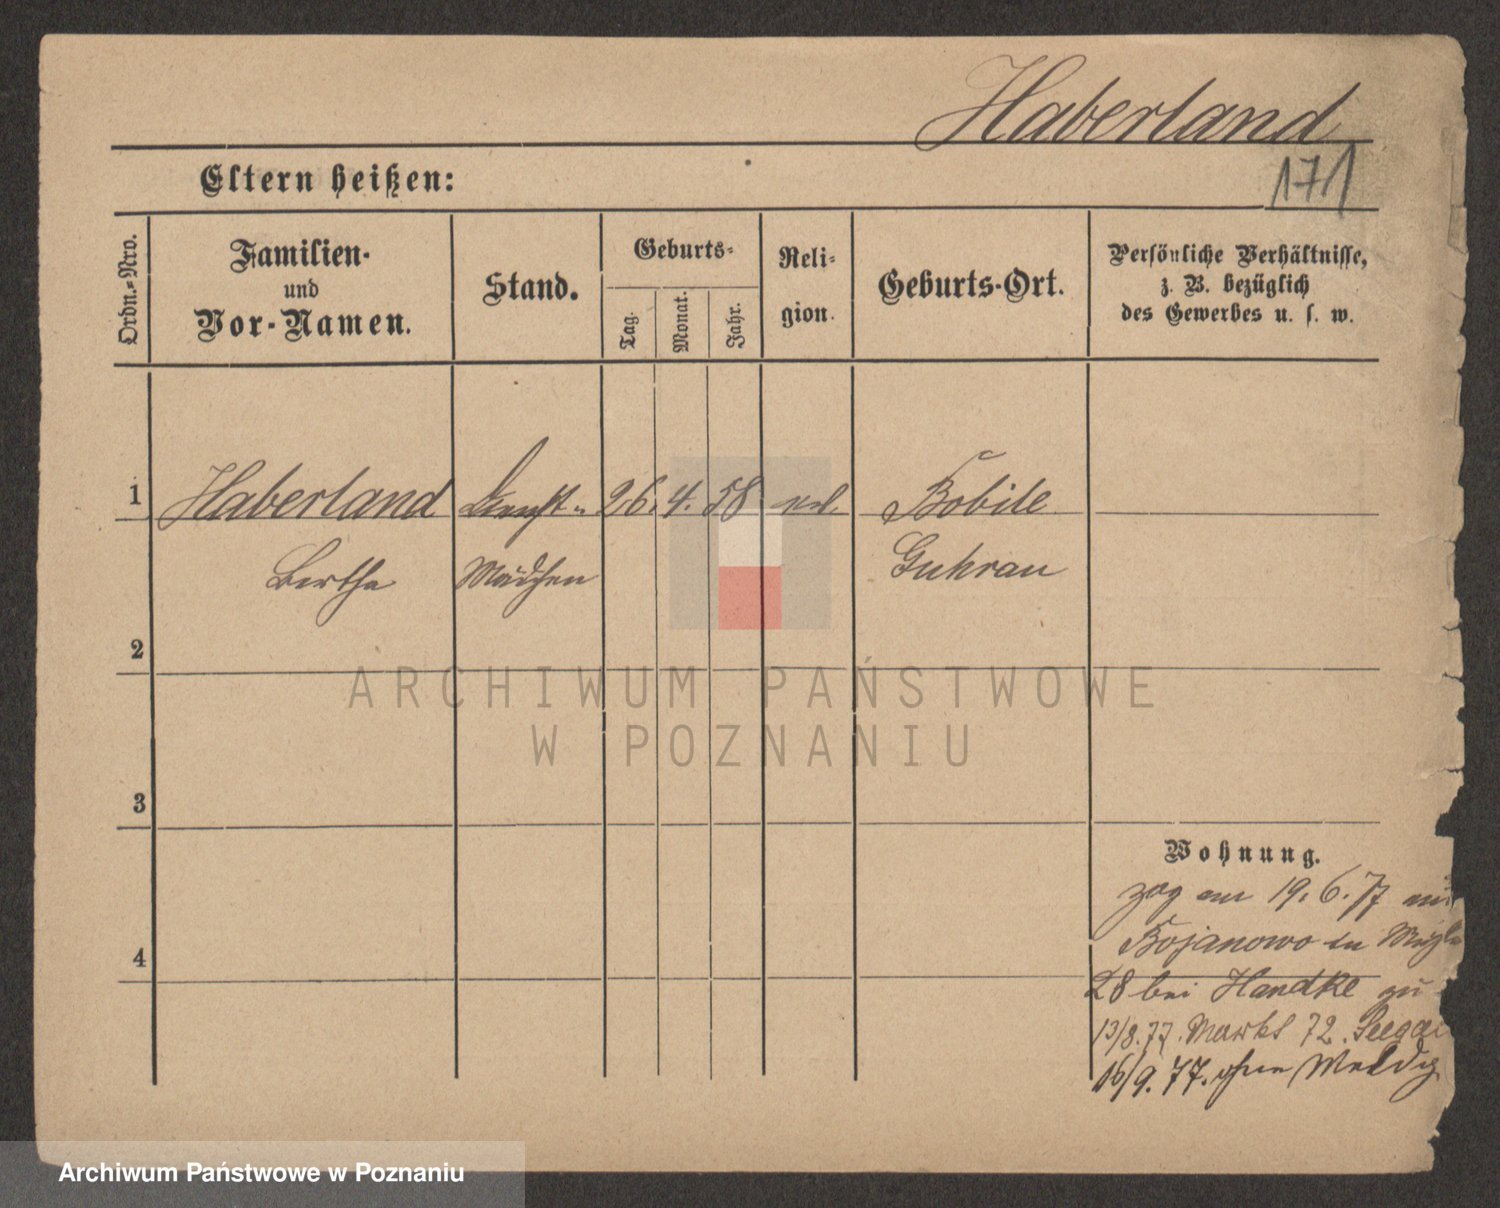 Haberland
171
Eltern heißen:
Ordn.-Nro.
Familien-
und
Vor-Namen.
Stand.
Geburts-
Tag.
Monat.
Jahr.
Reli-
gion.
Geburts-Ort.
Persönliche Verhältnisse,
z. B. bezüglich
des Gewerbes u. s. w.
1
Haberland Dienst- 26. 4. 58 Bobile
Bertha Mädchen Guhrau
2
ARCHIWUM PAŃSTWOWE
W POZNANIU
3
Wohnung.
zog am 19. 6. 77
Bojanowo in
4
28 bei Handke zu
13/8. 77. Markt 72.
16/9. 77. ohne Meldg
Archiwum Państwowe w Poznaniu